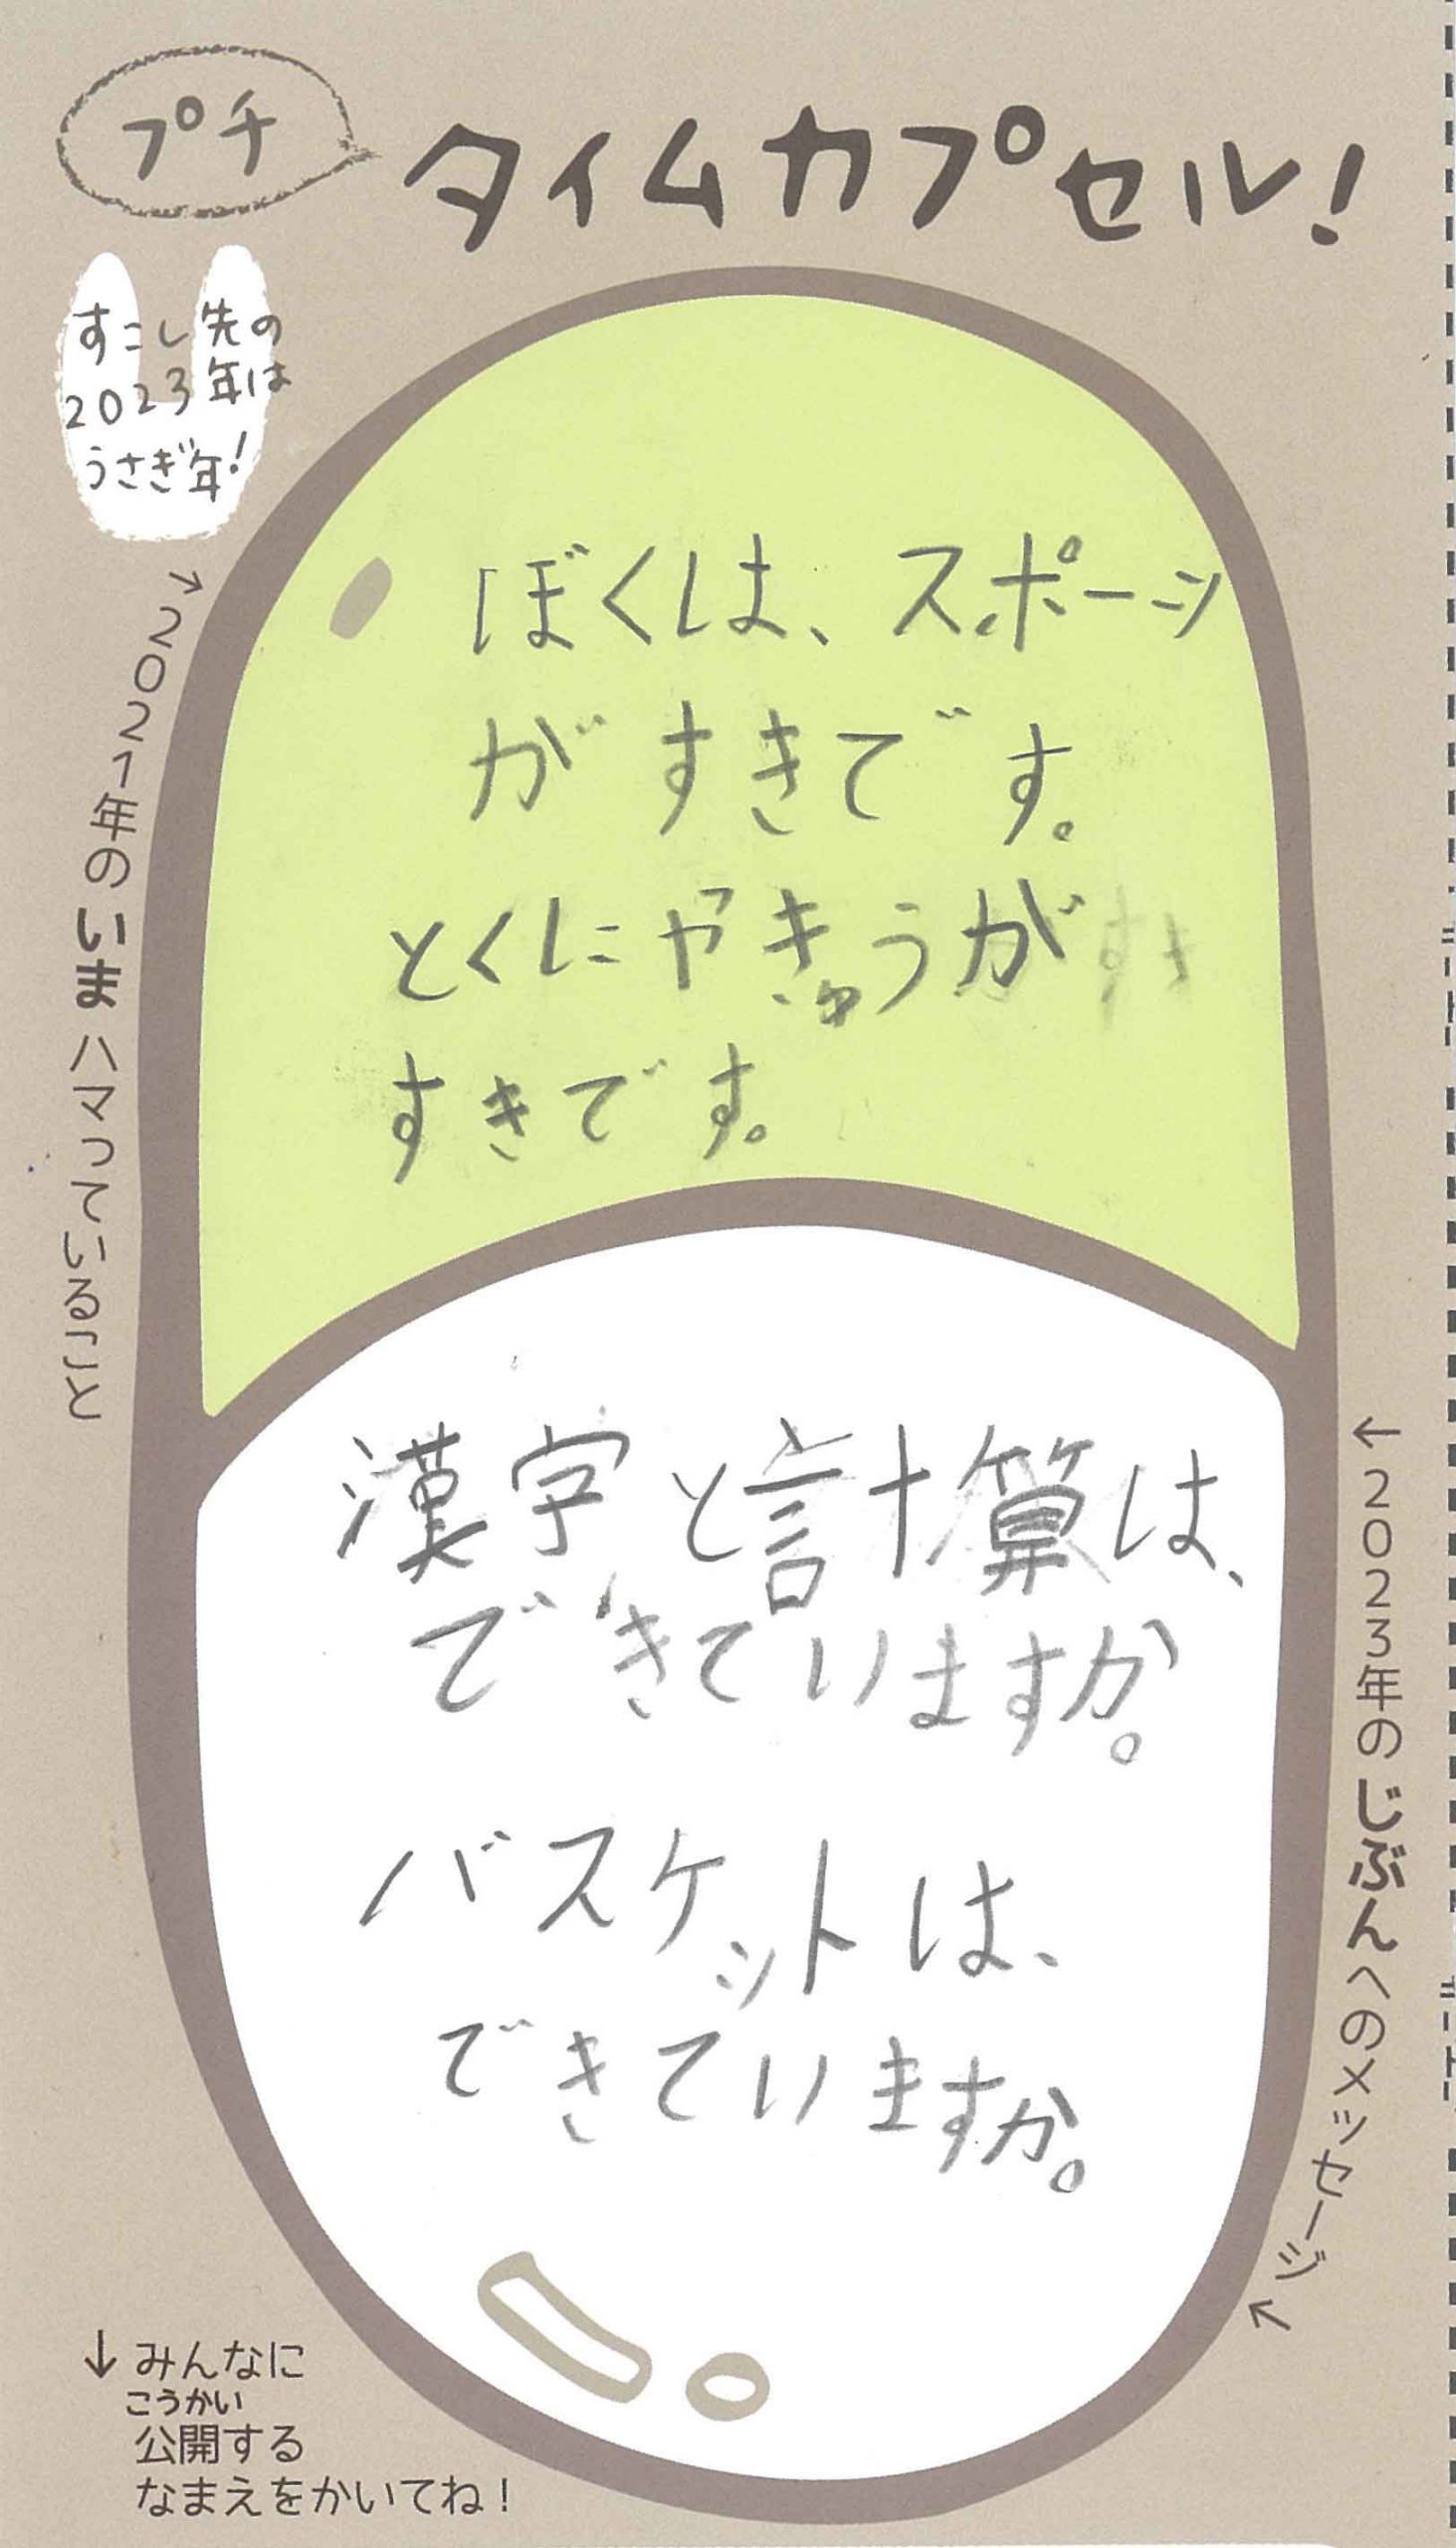 プチ
タイムカプセル！
すこし先の
2023年は
うさぎ年！
→2021年のいまハマっていること
ぼくは、スポーツ
がすきです。
とくにやきゅうが
すきです。
←2023年のじぶんへのメッセージ
漢字と計算は、
できていますか。
バスケットは、
できていますか。
↓みんなに
こうかい
公開する
なまえをかいてね！